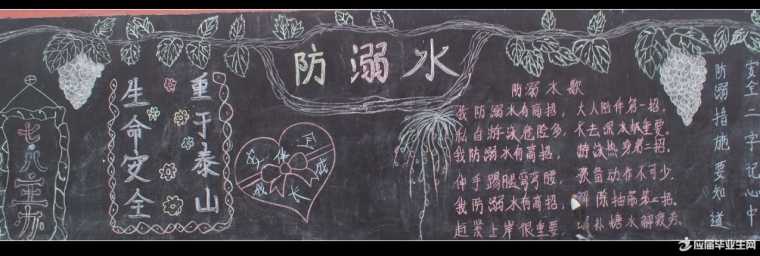 防溺水
七八主办
生命安全
重于泰山
安全伴我成长
防溺水歌
我防溺水有高招，大人陪伴第一招，
私自游泳危险多，不去深水贼重要。
我防溺水有高招，游泳热身第二招，
伸手踢腿弯弯腰，准备动作不可少。
我防溺水有高招，解除抽筋第三招，
赶紧上岸很重要，
补糖水解疲劳。
安全二字记心中
防溺措施要知道
应届毕业生网